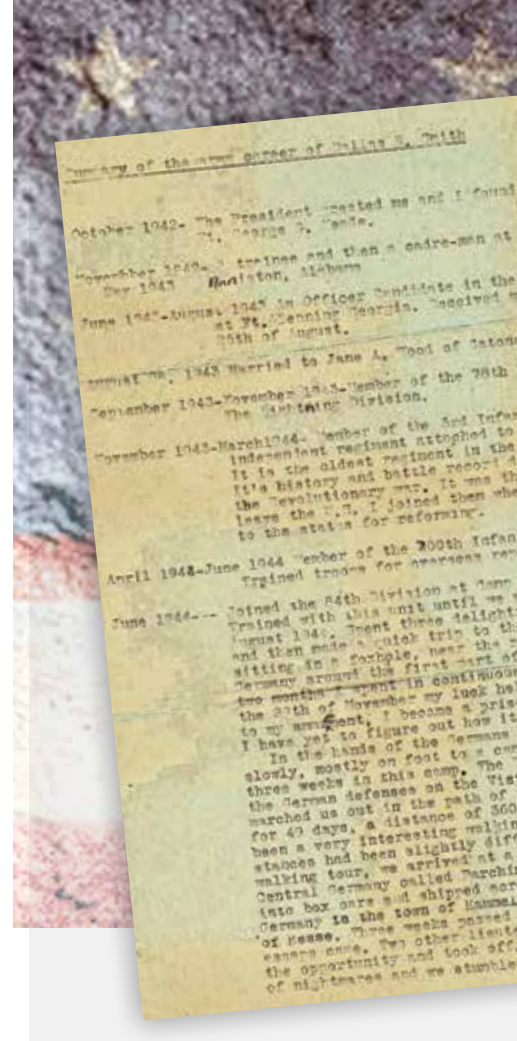 Summary of the army career of Smith
October 1942- The President greeted me and I found
Ft. George G. Meade.
November 1942- A trainee and then a cadre-man at
May 1943 Anniston, Alabama
June 1943-August 1943 An Officer Candidate in the
at Ft. Benning Georgia. Received
25th of August.
August 1943 Married to Jane A. Wood of
September 1943-November 1943-Member of the 78th
The Lightning Division.
November 1943-March1944- Member of the 3rd Infan
independent regiment attached to
It is the oldest regiment in the
It's history and battle record
the Revolutionary war. It was th
leave the I joined them whe
to the states for reforming.
April 1944-June 1944 Member of the 200th Infan
Trained troops for overseas
June 1944--- Joined the 84th Division at Camp
Trained with this unit until we
August 1944. Spent three delight
and then made a quick trip to th
sitting in a foxhole, near the
Germany around the first part of
two months I spent in continuous
the of November my luck
to my I become a pris
I have yet to figure out how it
In the hands of the Germans
slowly, mostly on foot to a
three weeks in this camp. The
the German defenses on the
marched us out in the path of
for 49 days, a distance of 360
been a very interesting walkin
stances had been slightly dif
walking tour, we arrived at a
Central Germany called Parchi
into box cars and shipped acr
Germany to the town of
of Hesse. Three weeks passed
came. Two other lieute
the opportunity and took off.
of nightmares and we stumble